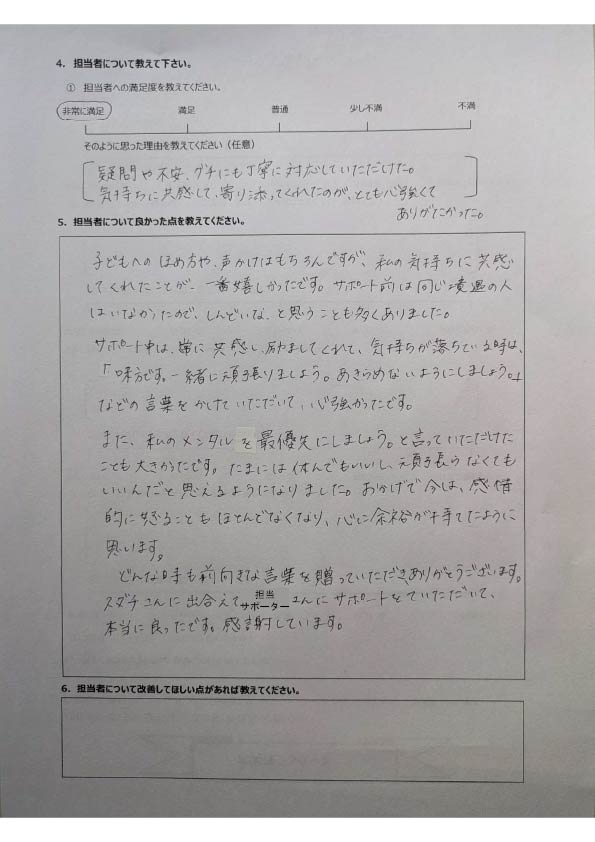 4. 担当者について教えて下さい。
① 担当者への満足度を教えてください。
非常に満足 満足 普通 少し不満 不満
そのように思った理由を教えてください（任意）
疑問や不安、グチにも丁寧に対応していただけた。
気持ちに共感して、寄り添ってくれたのが、とても心強くて
ありがたかった。
5. 担当者について良かった点を教えてください。
子どもへのほめ方や、声かけはもちろんですが、私の気持ちに共感
してくれたことが、一番嬉しかったです。サポート前は同じ境遇の人
はいなかったので、しんどいな、と思うことも多くありました。
サポート中は、常に共感し、励ましてくれて、気持ちが落ちている時は、
「味方です。一緒に頑張りましょう。あきらめないようにしましょう。」
などの言葉をかけていただいて、心強かったです。
また、私のメンタルを最優先にしましょう。と言っていただけた
ことも大きかったです。たまには休んでもいいし、頑張らなくても
いいんだと思えるようになりました。おかげで今は、感情
的に怒ることもほとんどなくなり、心に余裕が持てたように
思います。
どんな時も前向きな言葉を贈っていただきありがとうございます。
スダチさんに出合えて担当サポーターさんにサポートをていただいて、
本当に良ったです。感謝しています。
6. 担当者について改善してほしい点があれば教えてください。